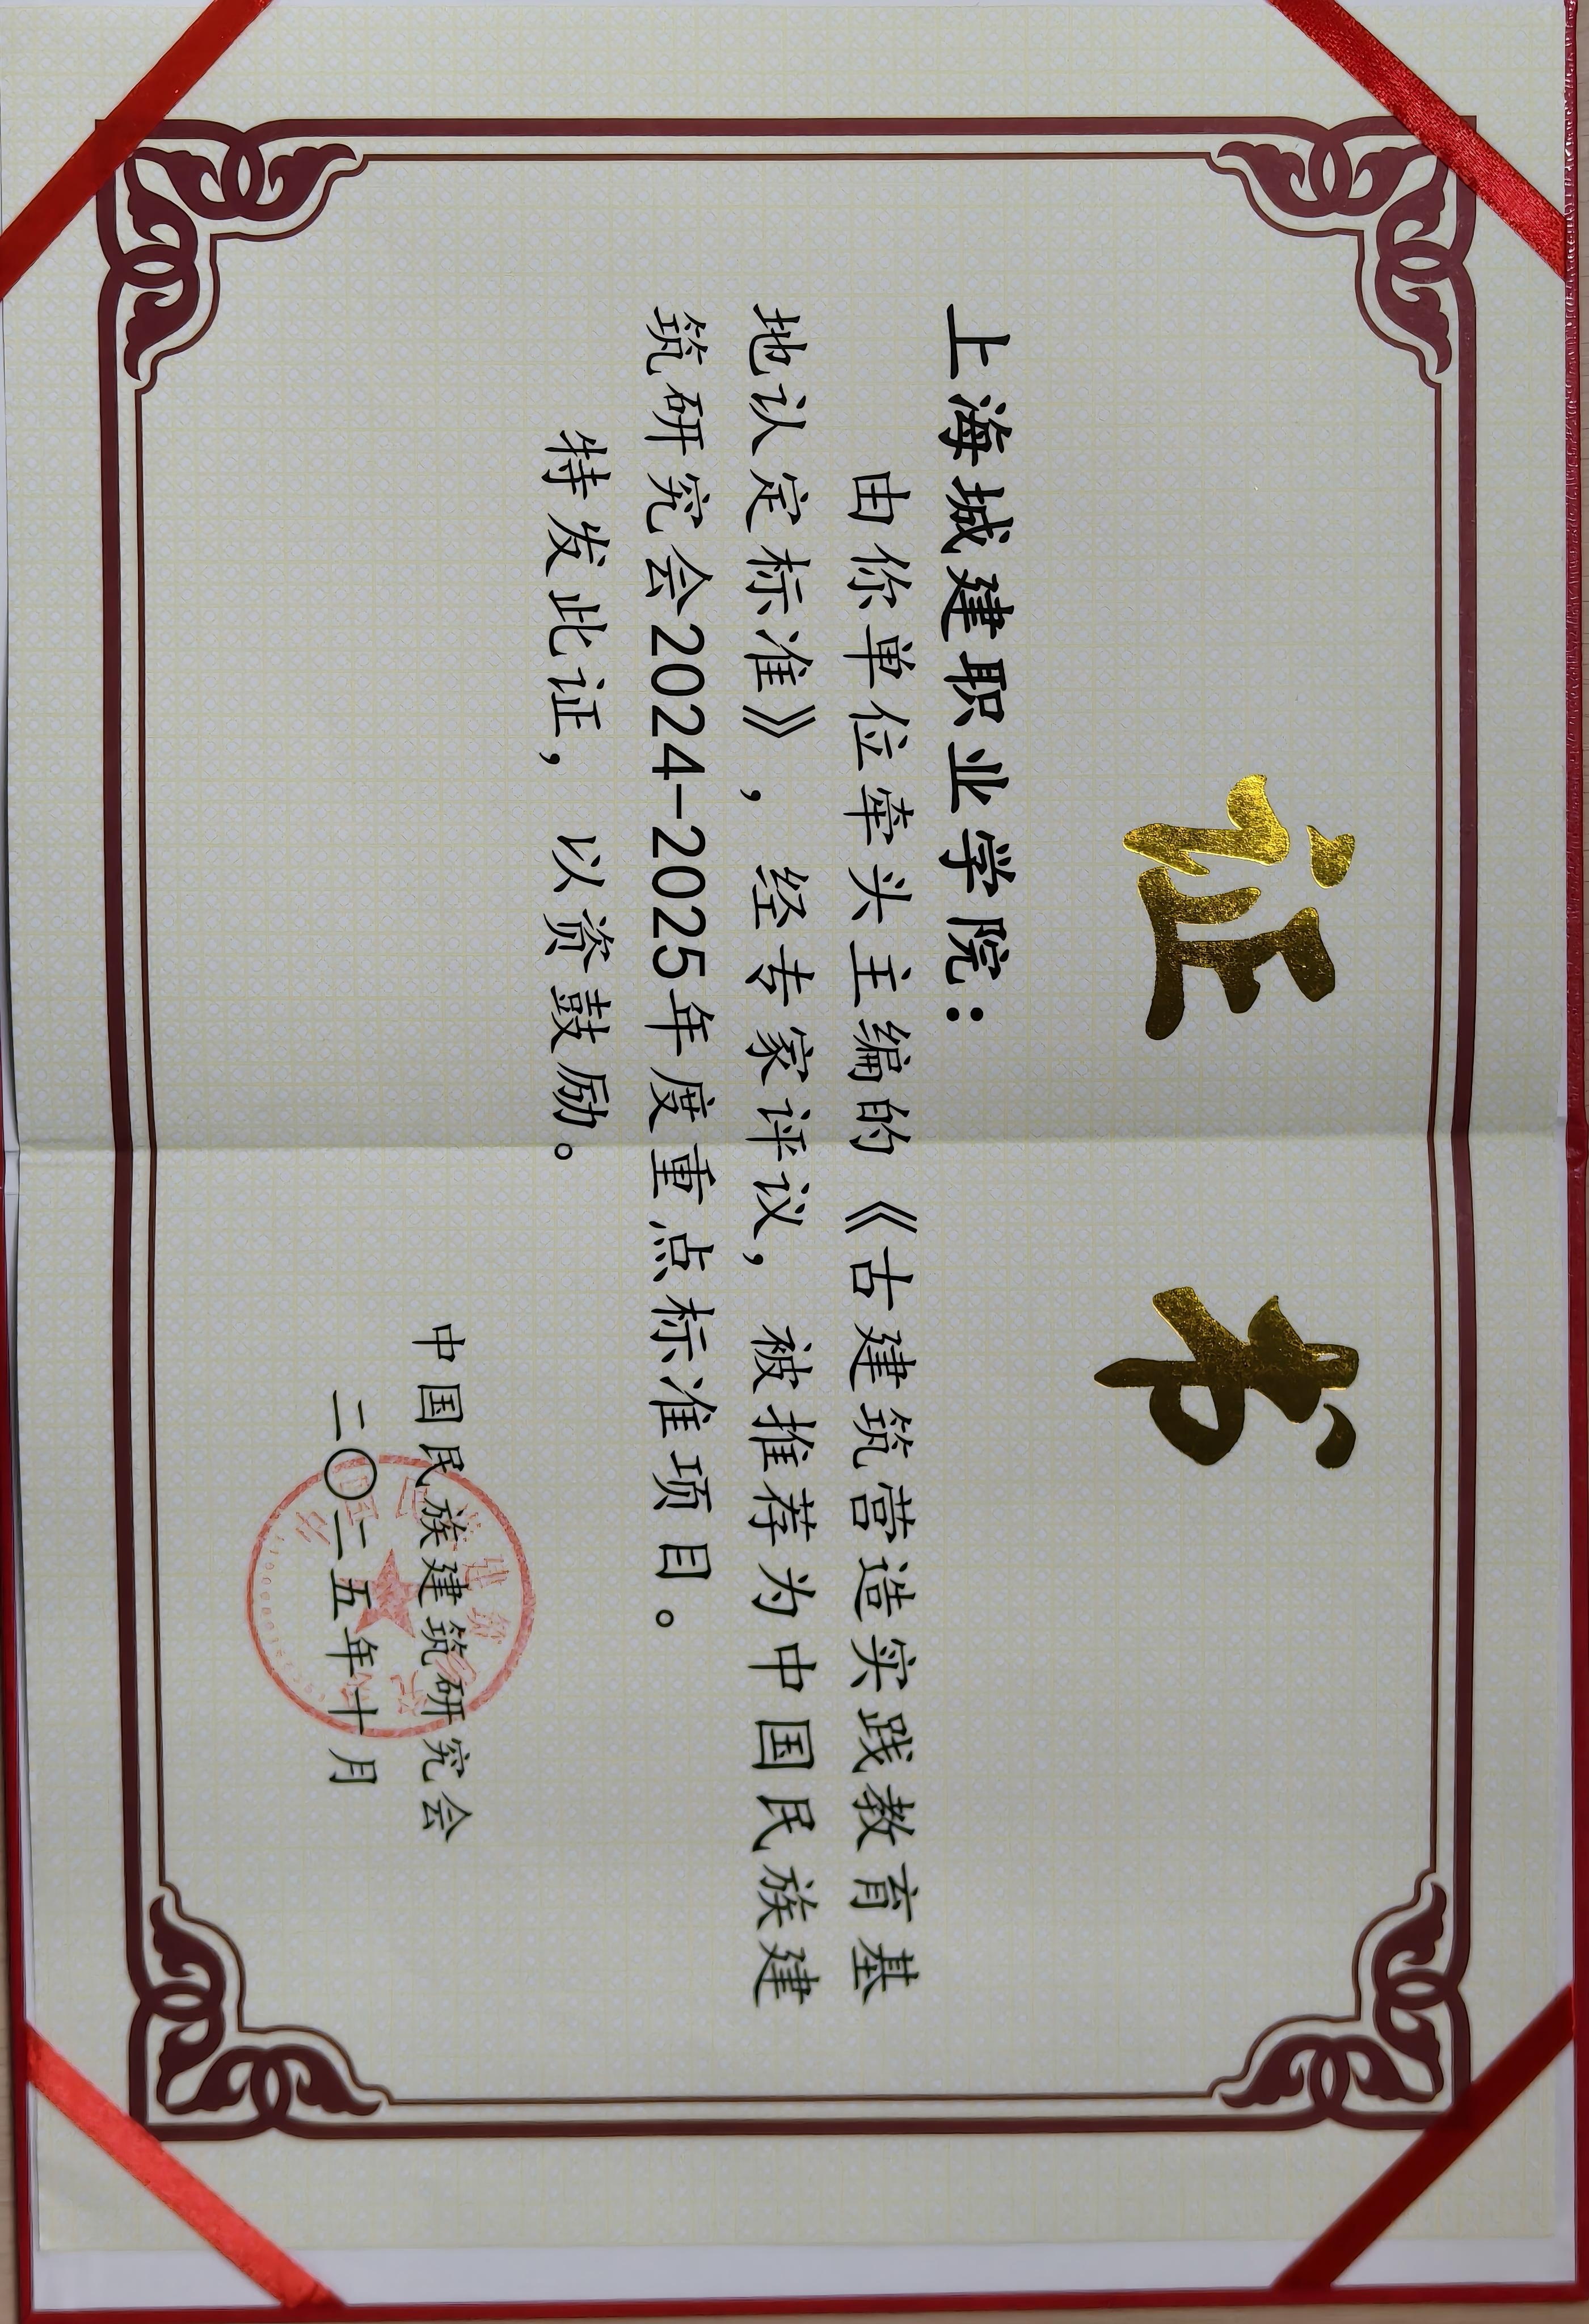 证书
上海城建职业学院：
由你单位牵头主编的《古建筑营造实践教育基
地认定标准》，经专家评议，被推荐为中国民族建
筑研究会2024-2025年度重点标准项目。
特发此证，以资鼓励。
中国民族建筑研究会
二〇二五年十月